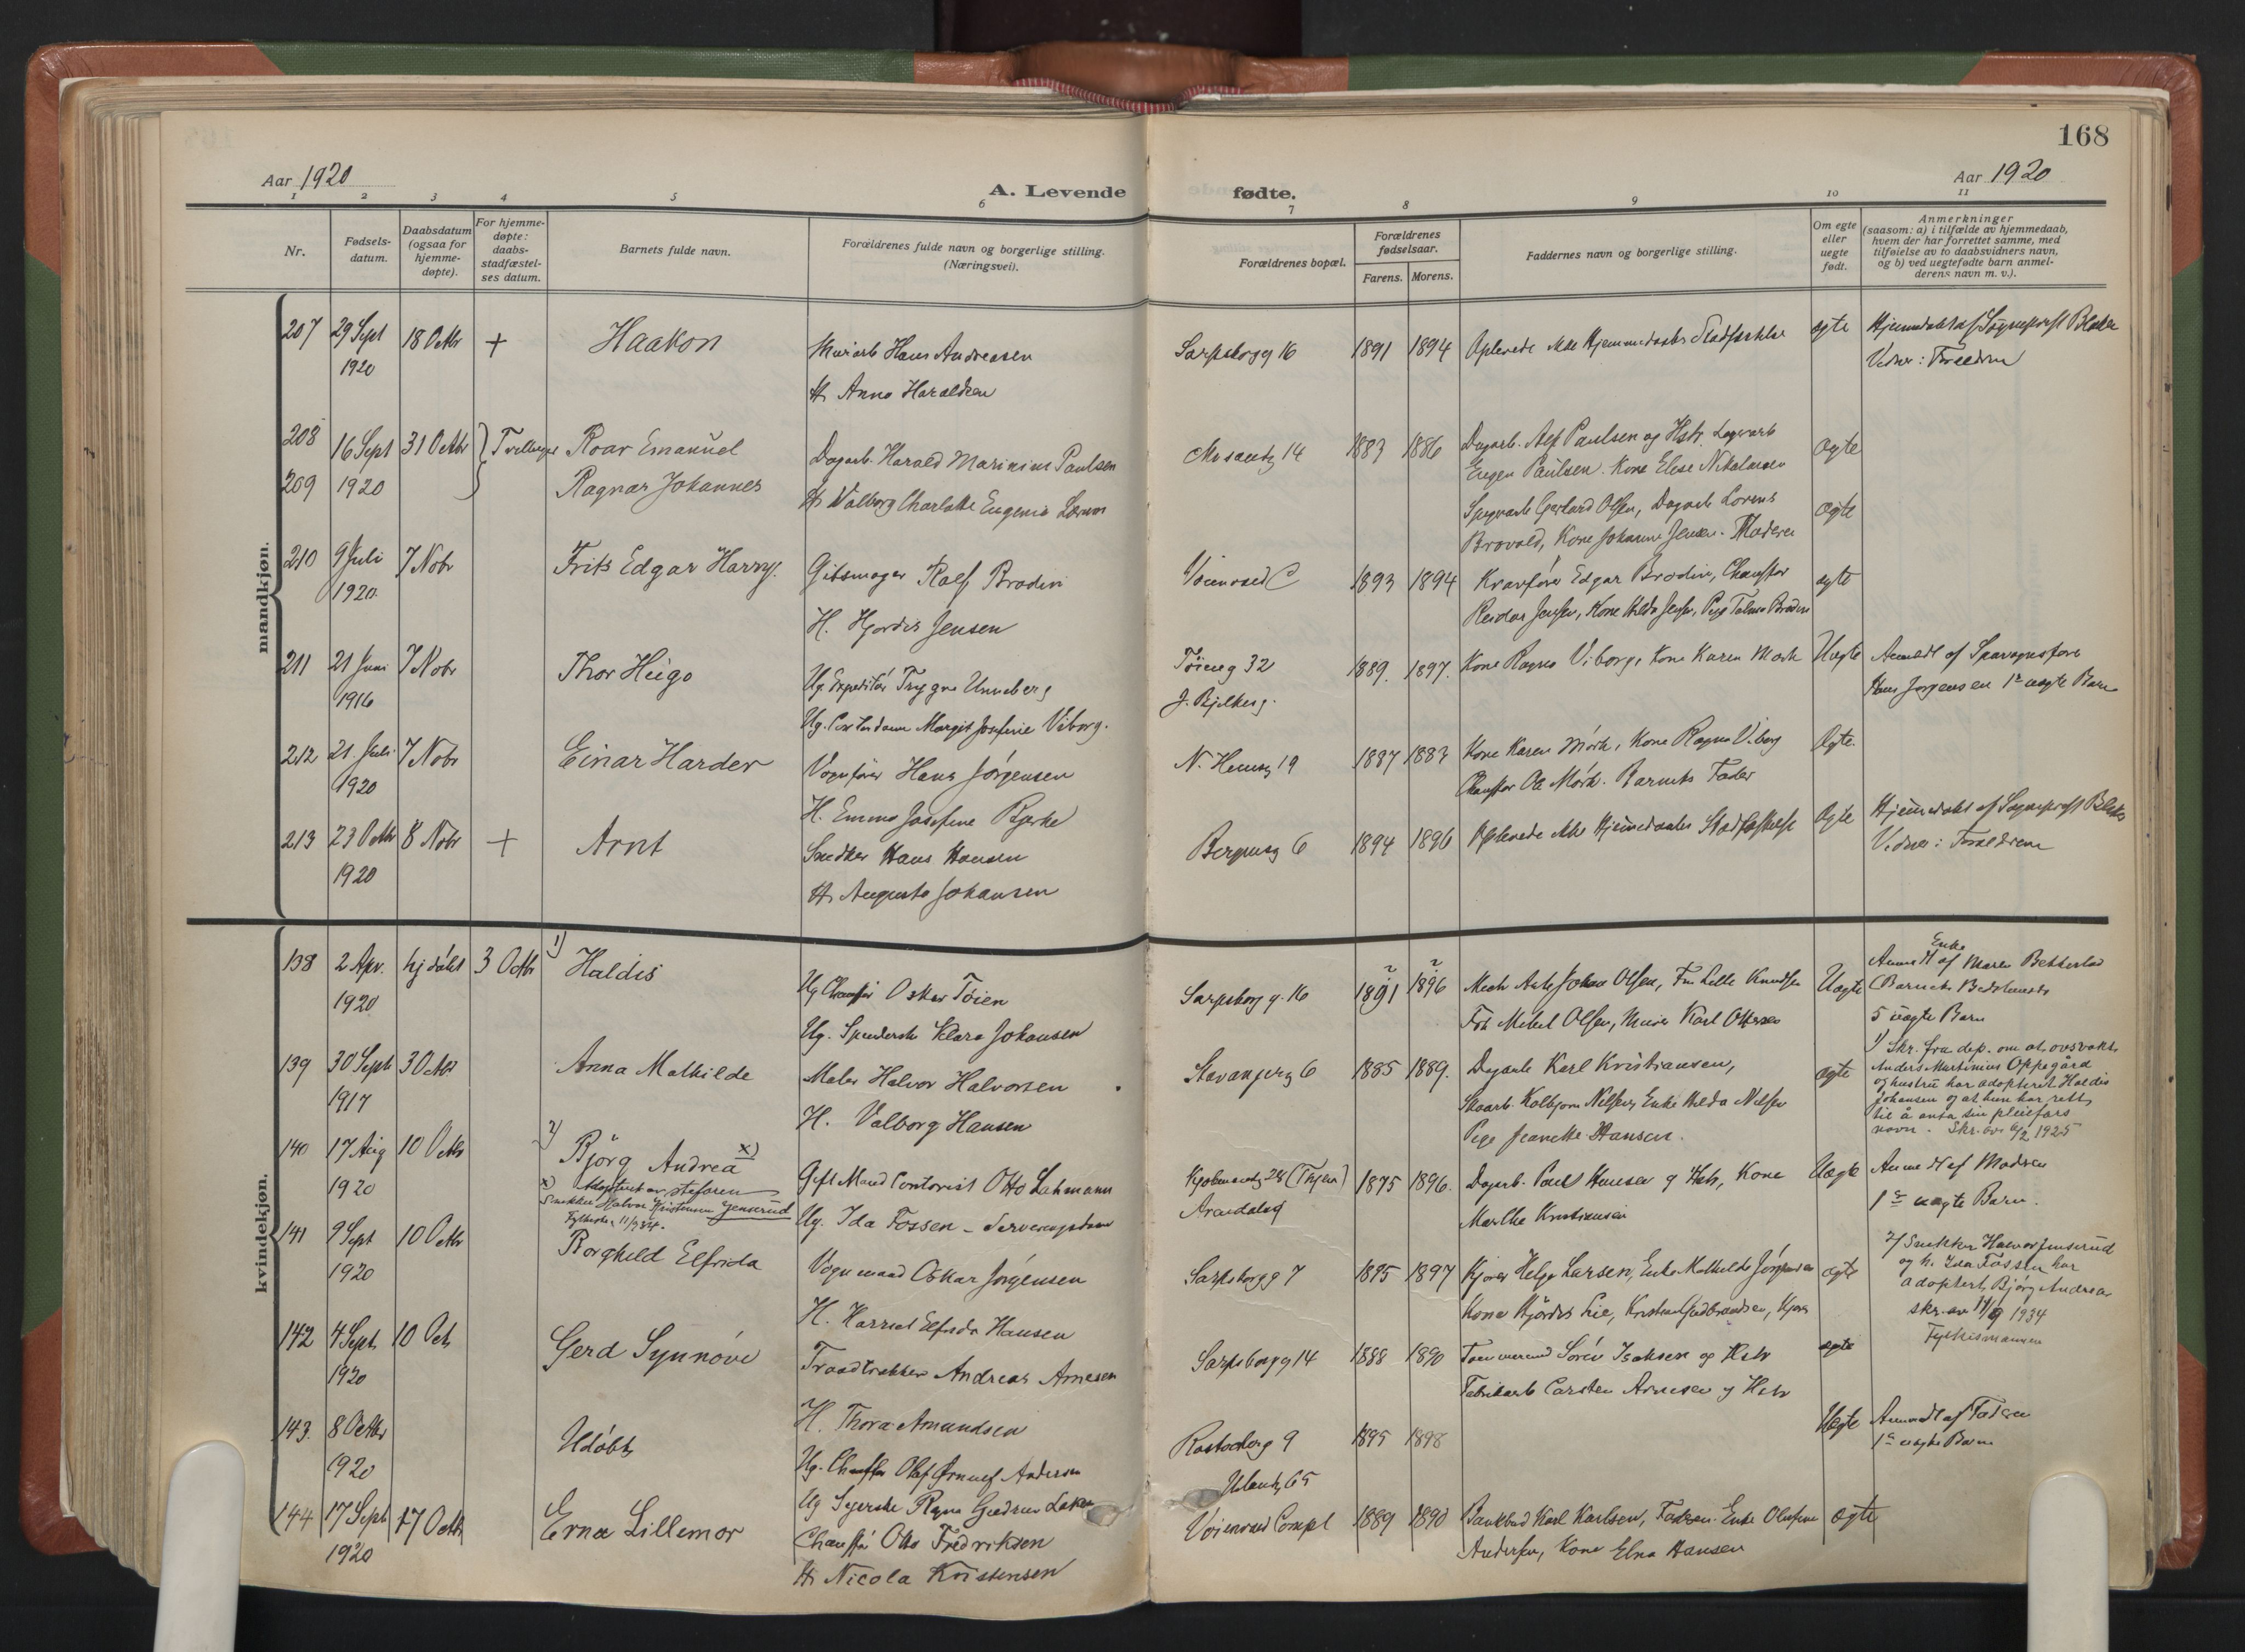 168
Aar 1920
A. Levende fødte.
Aar 1920
1 2 3 4 5 6 7 8 9 10 11
Nr.
Fødsels-
datum.
Daabsdatum
(ogsaa for
hjemme-
døpte).
For hjemme-
døpte:
daabs-
stadfæstel-
ses datum.
Barnets fulde navn.
Forældrenes fulde navn og borgerlige stilling.
(Næringsvei).
Forældrenes bopæl.
Forældrenes
fødselsaar.
Farens. Morens.
Faddernes navn og borgerlige stilling.
Om egte
eller
uegte
født.
Anmerkninger
(saasom: a) i tilfælde av hjemmedaab,
hvem der har forrettet samme, med
tilføielse av to daabsvidners navn,
og b) ved uegtefødte barn anmel-
derens navn m. v.).
mandkjøn.
207 29 Sept 18 Octbr + Haakon Murarb Hans Andreasen Sarpsborgg 16 1891 1894 Oplevede ikke Hjemmedaabs Stadfæstelse ægte Hjemmedøbt af Sogneprest Blakar
1920 H. Anna Haraldsen Vidner: Forældrene
208 16 Sept 31 Octbr Tvillinger Roar Emanuel Dagarb. Harald Marinius Paulsen 14 1883 1886 Dagarb. Alf Paulsen og Hstr. Lagerarb ægte
Eugen Paulsen. Kone Elise Nikolaisen
209 1920 Ragnar Johannes H. Valborg Charlotte Eugenie Gerhard Olsen, Dagarb Lorens ægte
Brovold, Kone Johanne Jensen. Moderen
210 9 Juli 7 Nobr Frits Edgar Harry. Gibsmager Ralf Brodin Voienvold C 1893 1894 Kranfører Edgar Brodin, Chauffør ægte
1920. H. Hjørdis Jensen Reidar Jensen, Kone Hilda Jensen, Pige Brodin
211 21 Juni 7 Nobr Thor Hugo Ug. Expeditør Trygve Unneberg Tøieng 32 1889. 1897. Kone Ragna Viborg, Kone Karen Mørk Uægte Anmeldt af
1916 Ug. Margit Josefine Viborg. J. Bjelkesg. Hans Jørgensen 1ste uægte Barn
212 21 Juli 7 Nobr Einar Harder Vognfører Hans Jørgensen N. 19 1887 1883 Kone Karen Mørk, Kone Ragna Viborg Ægte.
1920 H. Emma Josefine Bjerke Chauffør Ole Mørk. Barnets Fader
213 23 Octbr 8 Nobr + Arnt Snedker Hans Hansen Bergensg 6 1894 1896 Oplevede ikke Hjemmedaabs Stadfæstelse Ægte Hjemmedøbt af Sogneprest Blakar
1920 H. Augusta Johansen Vidner: Forældrene
kvindekjøn.
138 2 Apr. hjdøbt 3 Octbr 1) Haldis Ug Chauffør Oskar Tøien Sarpsborg g. 16 1891 1896 Mech Arb Johan Olsen, Fru Lilli Knudsen Uægte Anmeldt af Enke Maren
1920 Ug. Klara Johansen Frk Mikal Olsen, Murer Karl Ottersen (Barnets Bedstemor)
5 uægte Barn
1) Skr. fra dep. om at
139 30 Sept 3 Octbr Anna Mathilde Maler Halvor Halvorsen Stavangerg 6 1885 1889. Dagarb Karl Kristiansen, ægte Anders Martinius Oppegård
1917 H. Valborg Hansen Kolbjørn Nilsen, Enke Hilda Nilsen og hustru har adopteret Haldis
Pige Jeanette Hansen. Johansen og at hun har rett
til å anta sin pleiefars
navn. Skr. av 6/2 1925
140 17 Aug 10 Octbr 2) Bjørg Andrea x) Gift Mand Contorist Otto Lahmann (Thjem) 1875 1896. Dagarb. Paul Hansen og Hstr, Kone Uægte Anmeldt af Modren
1920 x) Adoptert av stefaren Ug. Ida Fossen - Serveringsdame Arendalsg Marthe Kristiansen 1ste uægte Barn.
Snekker Halvor Kristensen Jenserud
Fylkesm. 11/9 34.
141 9 Sept 10 Octbr Borghild Elfrida Vognmand Oskar Jørgensen Sarpsborgg 7 1895 1897 Kjører Helge Larsen, Enke Mathilde Jørgensen ægte 2) Snekker Halvor Jenserud
1920 H. Harriet Elfrida Hansen Kone Hjørdis Lie, Kristian Gudbrandsen, Kjører og h. Ida Fossen har
adoptert Bjørg Andrea
skr. av 11/9 1934
Fylkesmannen
142 4 Sept 10 Oct Gerd Synnøve Traadtrækker Andreas Arnesen Sarpsborgg 14 1888 1890 Tømmermand Søren Isaksen og Hstr ægte
1920 H. Thora Amundsen Fabrikarb Carsten Arnesen og Hstr
143. 8 Octbr Udøbt Ug. Chauffør Olaf Ørnulf Andersen 9 1895 1898 Uægte Anmeldt af Fadren
1920 Ug Syerske Ragna Gudrun Uelandsg 65 1ste uægte Barn
144 17 Sept 17 Octb Erna Lillemor Chauffør Otto Fredriksen Voienvold Compl 1889 1890 Karl Karlsen, Fadren. Enke Olufine ægte
1920 H. Nicola Kristensen Andersen, Kone Elna Hansen